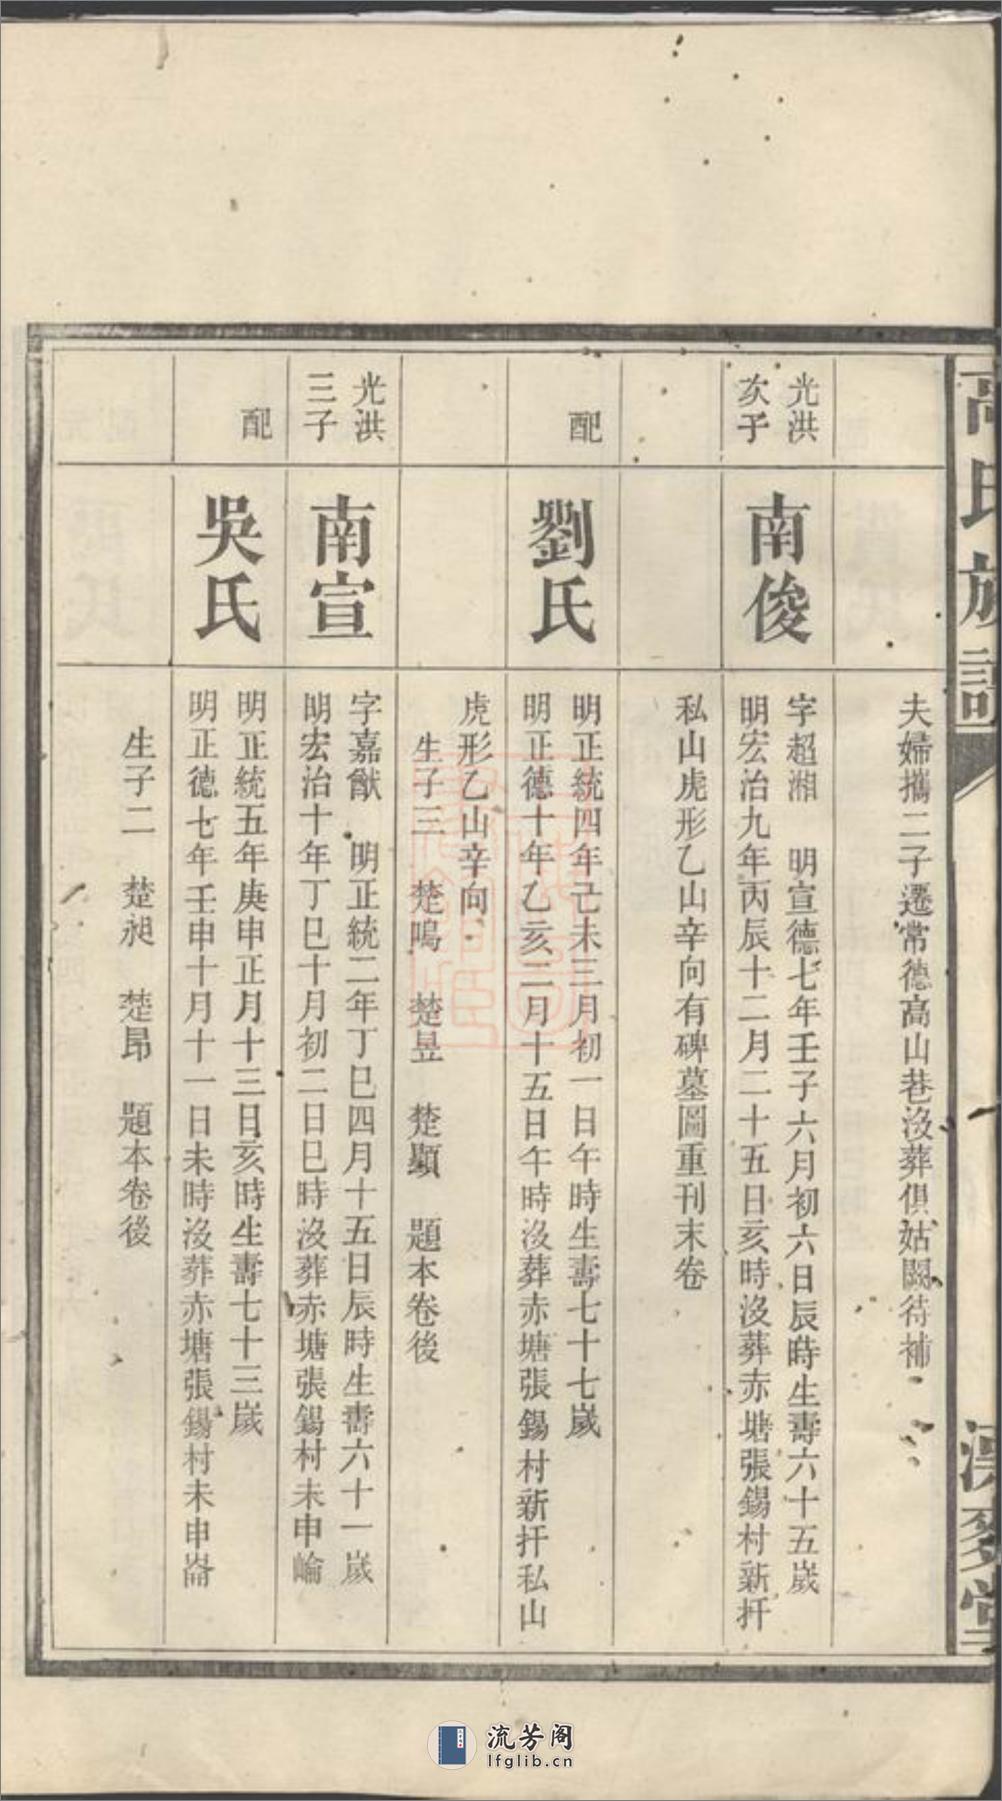 高氏族譜
漂麥堂
夫婦攜二子遷常德高山巷沒葬俱姑闕待補
光洪
次子
南俊
字超湘 明宣德七年壬子六月初六日辰時生壽六十五歲
明宏治九年丙辰十二月二十五日亥時沒葬赤塘張錫村新扦
私山虎形乙山辛向有碑墓圖重刊末卷
配
劉氏
明正統四年己未三月初一日午時生壽七十七歲
明正德十年乙亥二月十五日午時沒葬赤塘張錫村新扦私山
虎形乙山辛向
生子三 楚鳴 楚昱 楚顯 題本卷後
光洪
三子
南宣
字嘉猷 明正統二年丁巳四月十五日辰時生壽六十一歲
明宏治十年丁巳十月初二日巳時沒葬赤塘張錫村未申崙
配
吳氏
明正統五年庚申正月十三日亥時生壽七十三歲
明正德七年壬申十月十一日未時沒葬赤塘張錫村未申崙
生子二 楚昶 楚昂 題本卷後
流芳阁
lfglib.cn